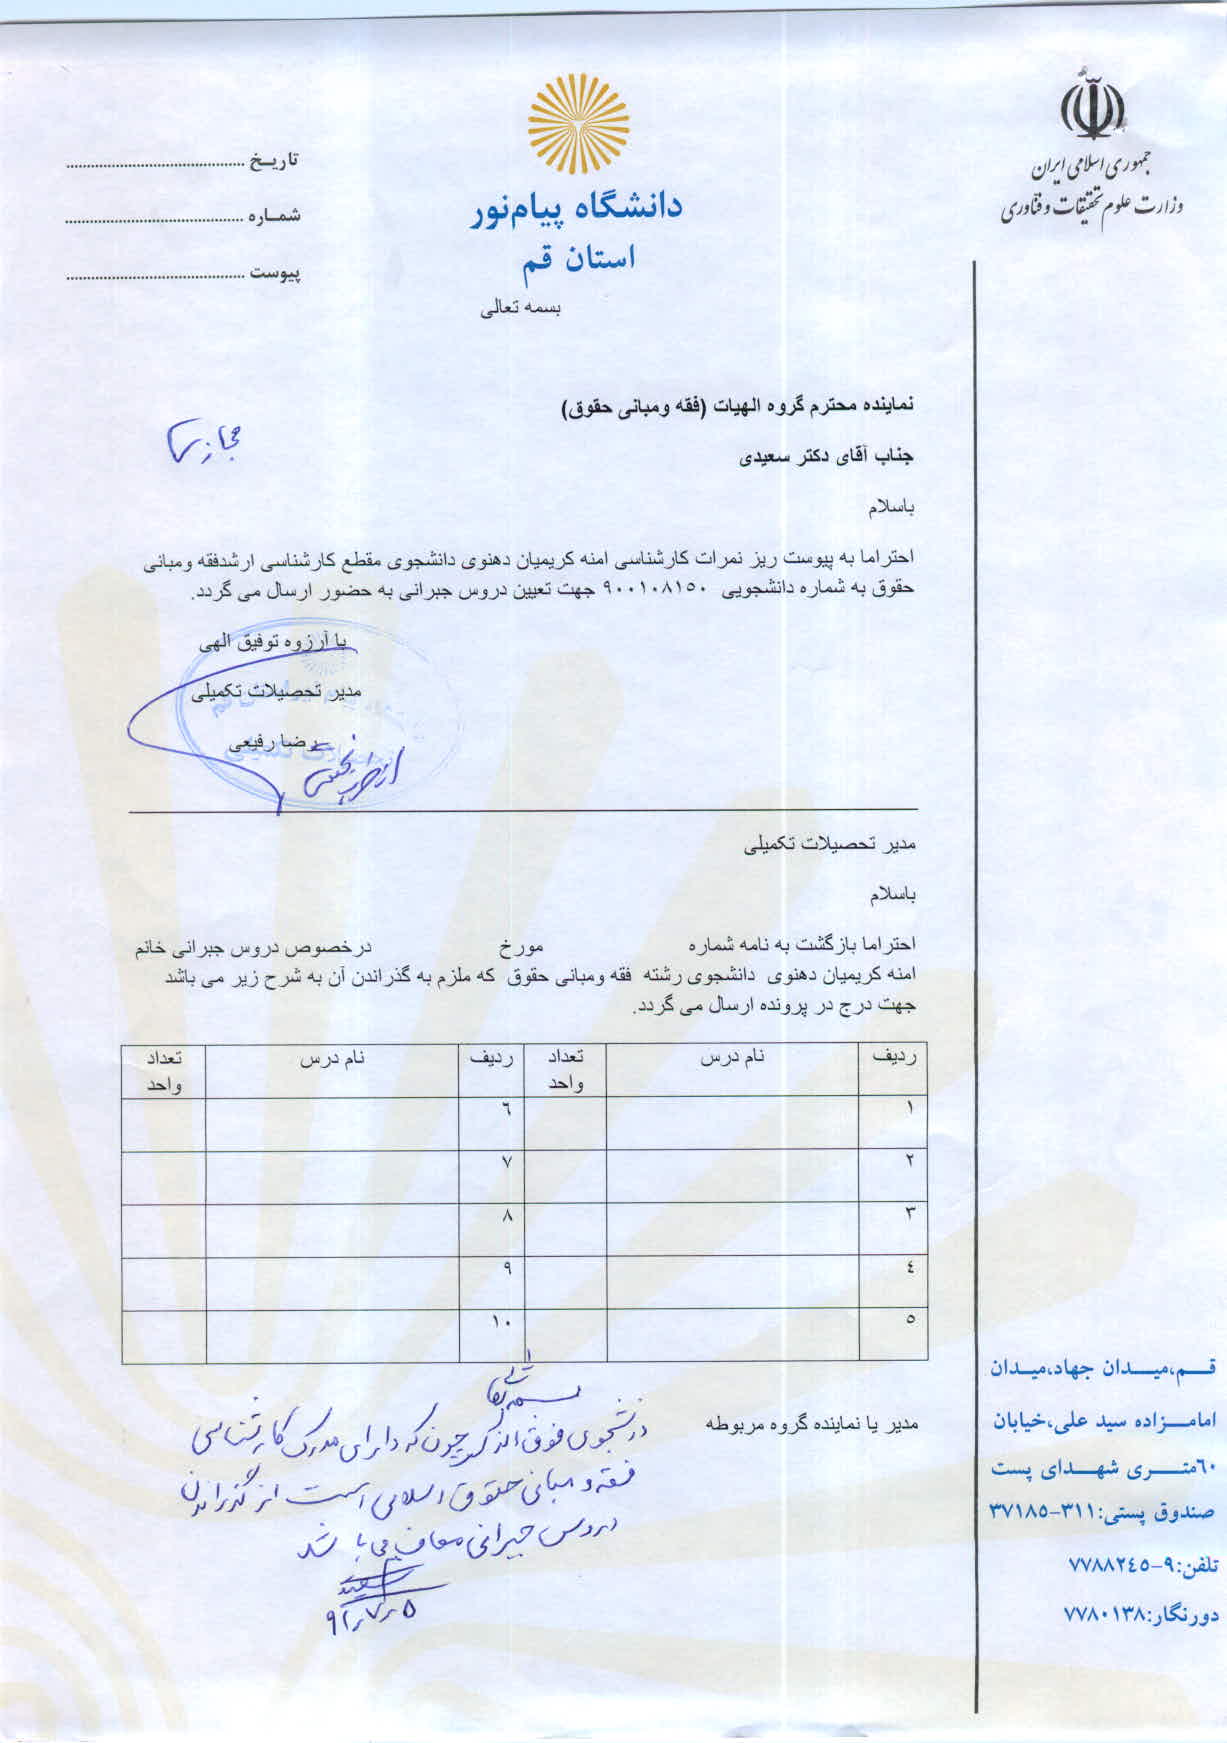 جمهوری اسلامی ایران
وزارت علوم تحقیقات و فنآوری
دانشگاه پیام‌نور
استان قم
تاریـخ
شمـاره
پیوست
بسمه تعالی
نماینده محترم گروه الهیات (فقه ومبانی حقوق)
جناب آقای دکتر سعیدی
باسلام
احتراما به پیوست ریز نمرات کارشناسی امنه کریمیان دهنوی دانشجوی مقطع کارشناسی ارشدفقه ومبانی
حقوق به شماره دانشجویی ۹۰۰۱۰۸۱۵۰ جهت تعیین دروس جبرانی به حضور ارسال می گردد.
با آرزوه توفیق الهی
مدیر تحصیلات تکمیلی
رضا رفیعی
مدیر تحصیلات تکمیلی
باسلام
احتراما بازگشت به نامه شماره مورخ درخصوص دروس جبرانی خانم
امنه کریمیان دهنوی دانشجوی رشته فقه ومبانی حقوق که ملزم به گذراندن آن به شرح زیر می باشد
جهت درج در پرونده ارسال می گردد.
ردیف نام درس تعداد واحد ردیف نام درس تعداد واحد
۱ ٦
۲ ۷
۳ ۸
٤ ۹
٥ ۱۰
مدیر یا نماینده گروه مربوطه
بسمه تعالی
دانشجوی فوق الذکر چون که دارای مدرک کارشناسی
فقه و مبانی حقوق اسلامی است از گذراندن
دروس جبرانی معاف می باشد
۹۱٫۷٫۵
قـم،میـدان جهاد،میـدان
امامـزاده سید علی،خیابان
۶۰متـری شهـدای پست
صندوق پستی:۳۱۱-۳۷۱۸۵
تلفن:۹-۷۷۸۸۲٤٥
دورنگار:۷۷۸۰۱۳۸